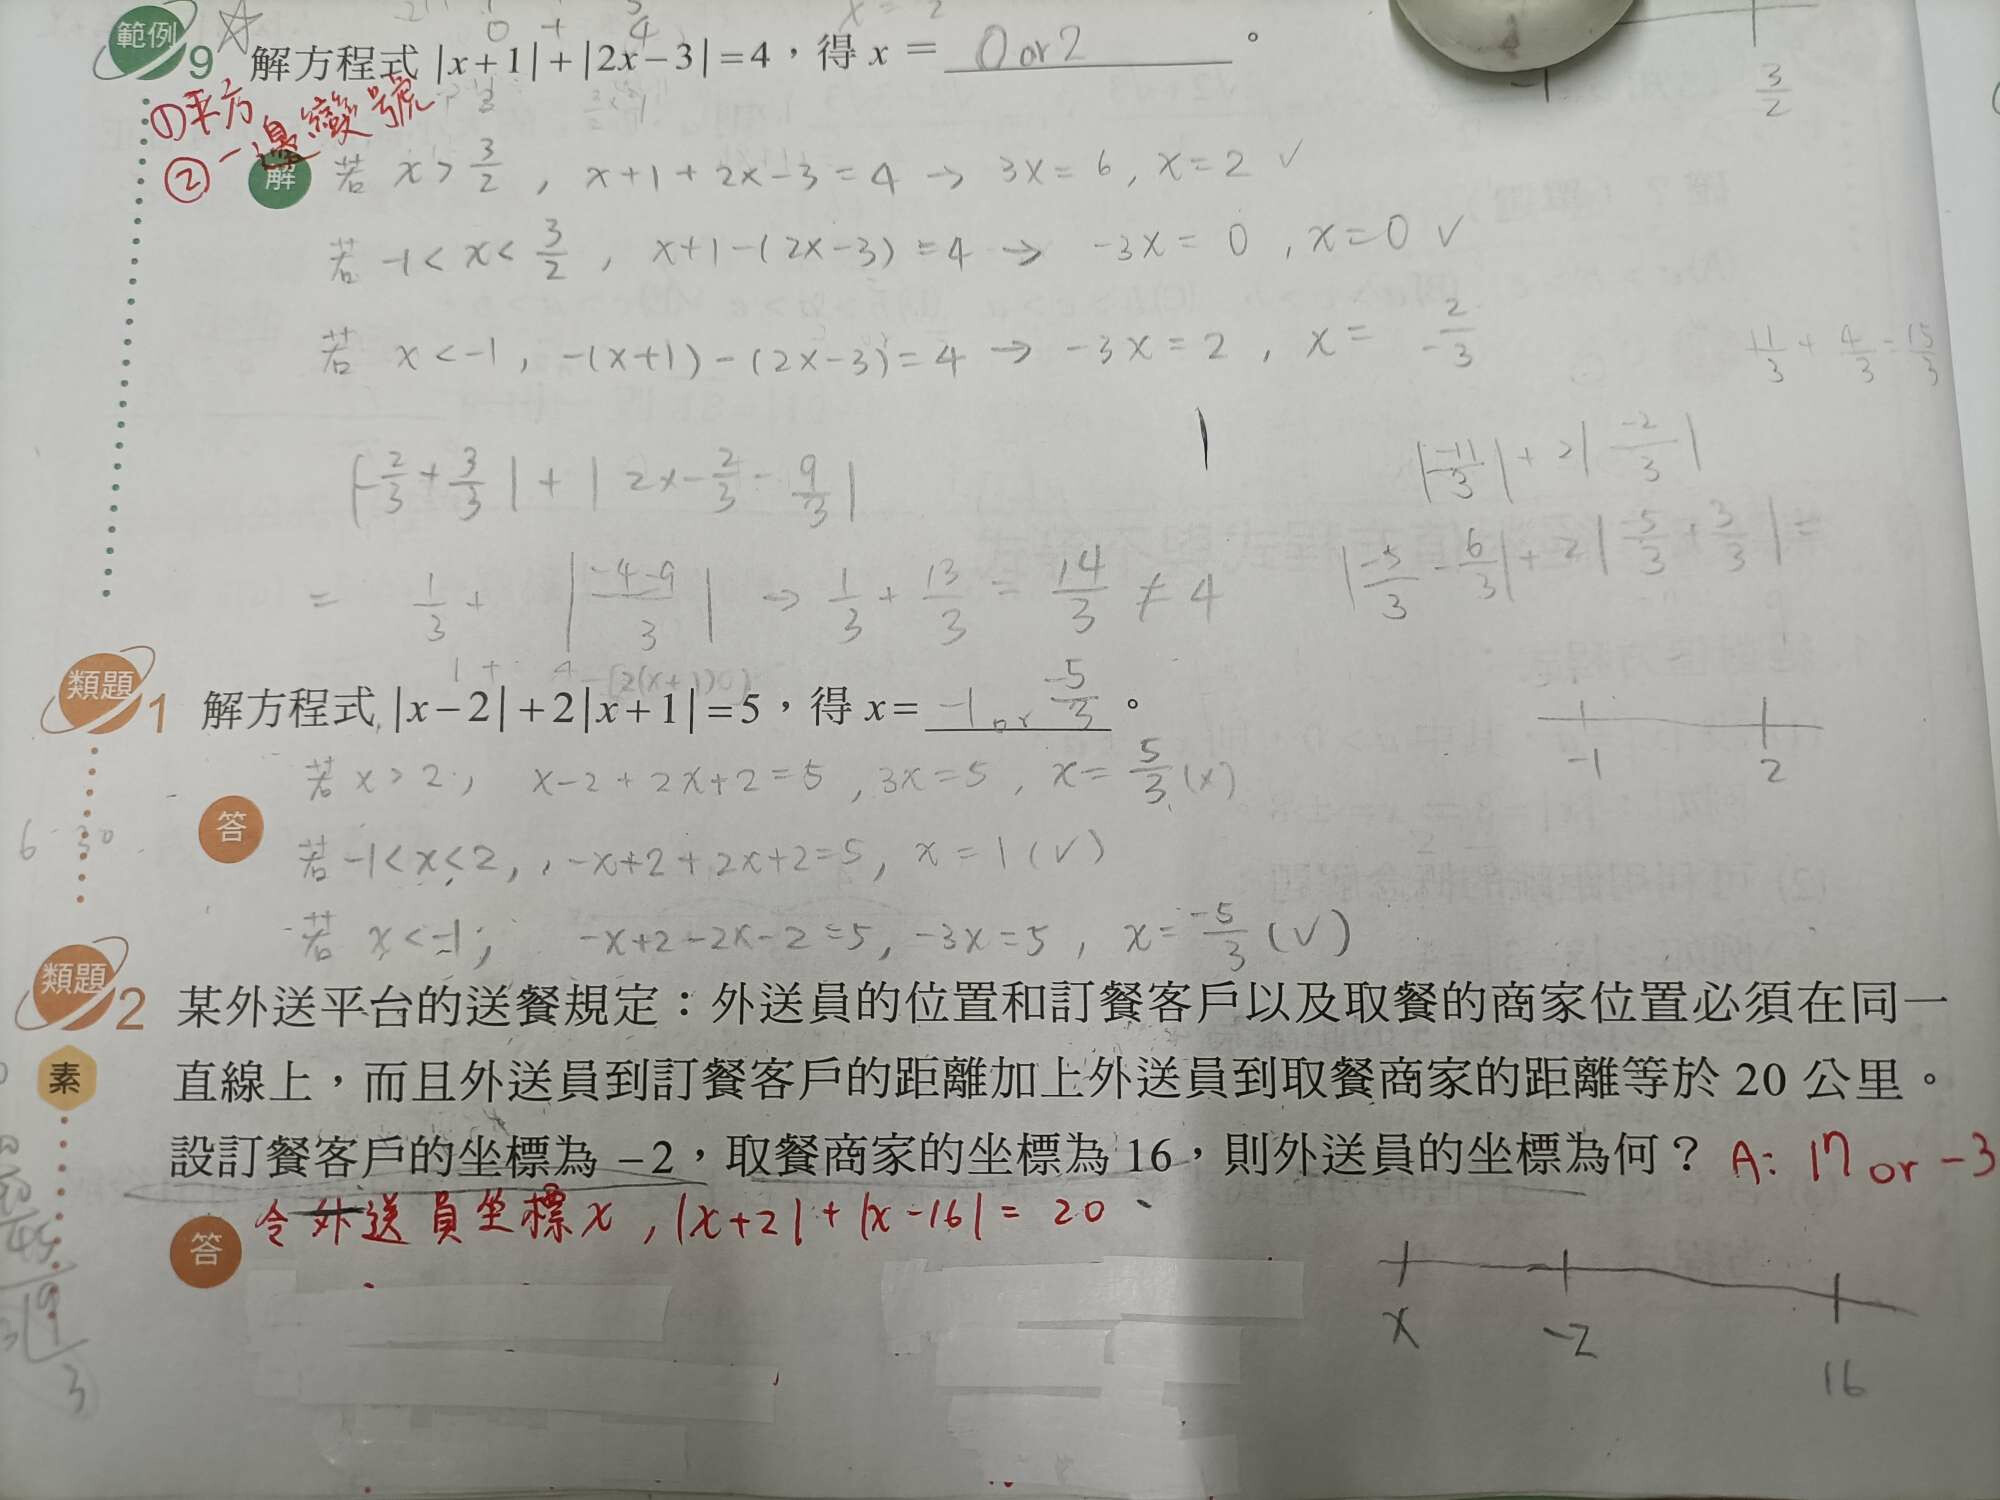 範例 9 解方程式 |x+1|+|2x-3|=4，得 x = 0 or 2 。
-1 3/2
①平方
②一邊變號
解 若 x > 3/2 , x+1+2x-3=4 → 3x=6, x=2 ✓
若 -1<x<3/2 , x+1-(2x-3)=4 → -3x=0 , x=0 ✓
若 x<-1 , -(x+1)-(2x-3)=4 → -3x=2 , x= -2/3
11/3 + 4/3 = 15/3
|-2/3+3/3|+|2x-2/3-9/3|
|-11/3|+2|-2/3|
= 1/3 + |-4-9/3| → 1/3 + 13/3 = 14/3 ≠ 4
|-5/3-6/3|+2|-5/3+3/3|=
類題 1 解方程式 |x-2|+2|x+1|=5，得 x= -1 or -5/3 。
-1 2
若 x>2 , x-2+2x+2=5 , 3x=5 , x=5/3 (x)
答
若 -1<x<2, -x+2+2x+2=5, x=1 (✓)
若 x<-1 , -x+2-2x-2=5, -3x=5 , x=-5/3 (✓)
類題 2 某外送平台的送餐規定：外送員的位置和訂餐客戶以及取餐的商家位置必須在同一
素 直線上，而且外送員到訂餐客戶的距離加上外送員到取餐商家的距離等於 20 公里。
設訂餐客戶的坐標為 -2，取餐商家的坐標為 16，則外送員的坐標為何？ A: 17 or -3
答 令外送員坐標 x , |x+2|+|x-16|= 20
x -2 16